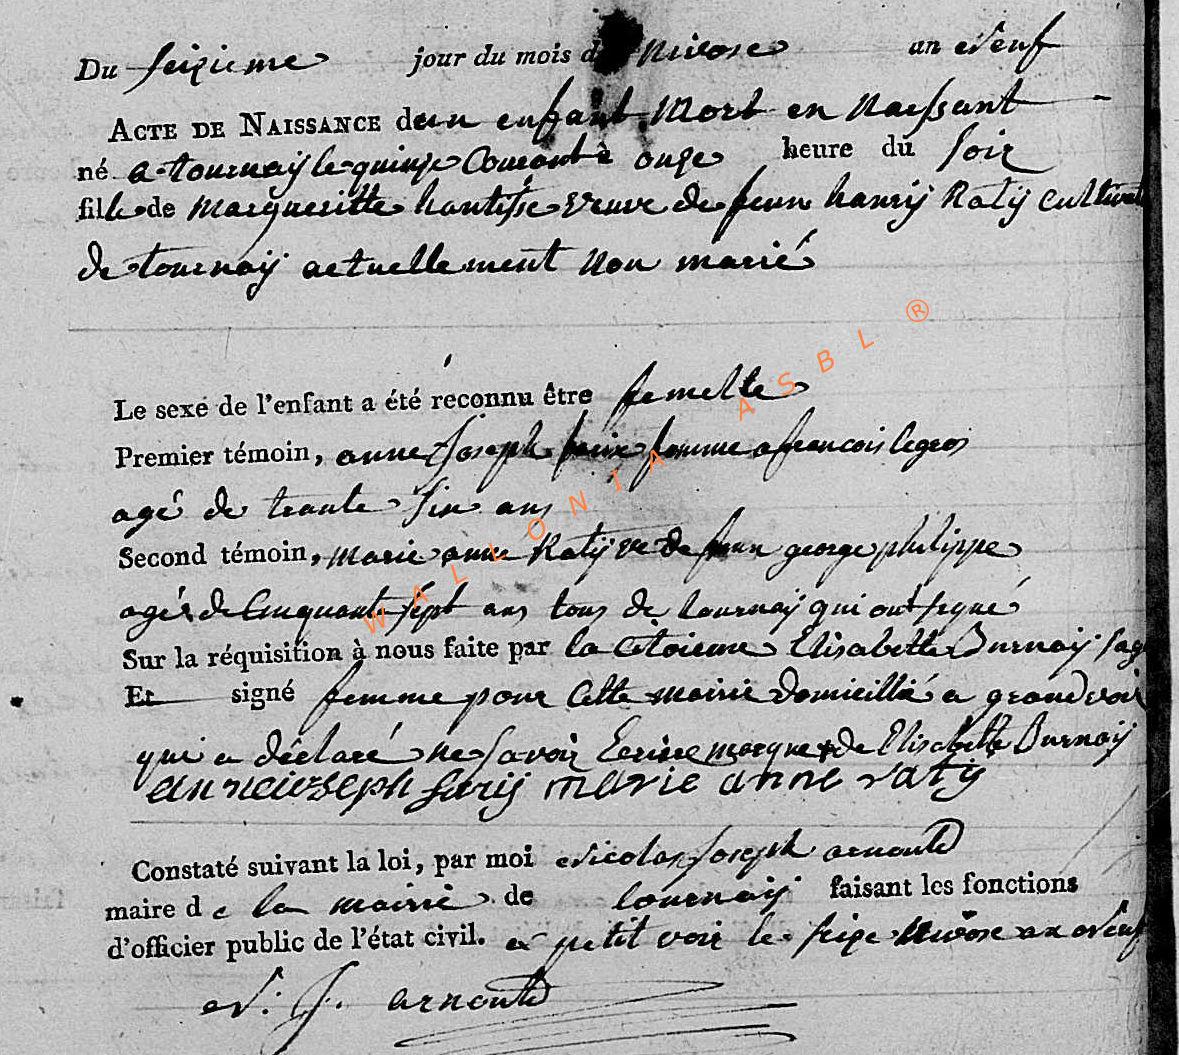 Du seizieme jour du mois de Nivose an neuf
ACTE DE NAISSANCE d'un enfant Mort en naissant
né a tournay le quinze Courant à onze heure du soir
fille de margueritte hautesse veuve de feu hanry Raty cultivat
de tournay actuellement non marié
Le sexe de l'enfant a été reconnu être femelle
Premier témoin, anne Joseph femme a francois legros
agé de trante sin ans
Second témoin, marie anne Raty ve de feu george philippe
agée de Cinquant sept ans tous de tournay qui ont signé
Sur la réquisition à nous faite par la Citoienne Elisabette Burnay sage
Et signé femme pour Cette mairie domicillié a grandvoir
qui a déclaré ne savoir Ecrire marque + de Elisabette Burnay
anne ioseph marie anne raty
Constaté suivant la loi, par moi Nicolas Joseph arnould
maire de la mairie de tournay faisant les fonctions
d'officier public de l'état civil. a petit voir le seize Nivose an neuf
N. J. arnould
WALLONIA ASBL ®